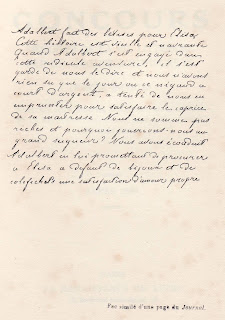 Adalbert fait des bêtises pour Elsa
Cette histoire est vieille et navrante
Quand Adalbert s'est engagé dans
cette ridicule aventure, il s'est
gardé de nous le dire et nous n'avons
rien su que le jour où ce négard à
court d'argent, a tenté de nous en
emprunter pour satisfaire le caprice
de sa maîtresse Nous ne sommes pas
riches et pourquoi jouerions-nous au
grand seigneur? Nous avons éconduit
Adalbert en lui promettant de procurer
à Elsa à défaut de bijoux et de
colifichets une satisfaction d'amour propre
Fac similé d'une page du Journal.